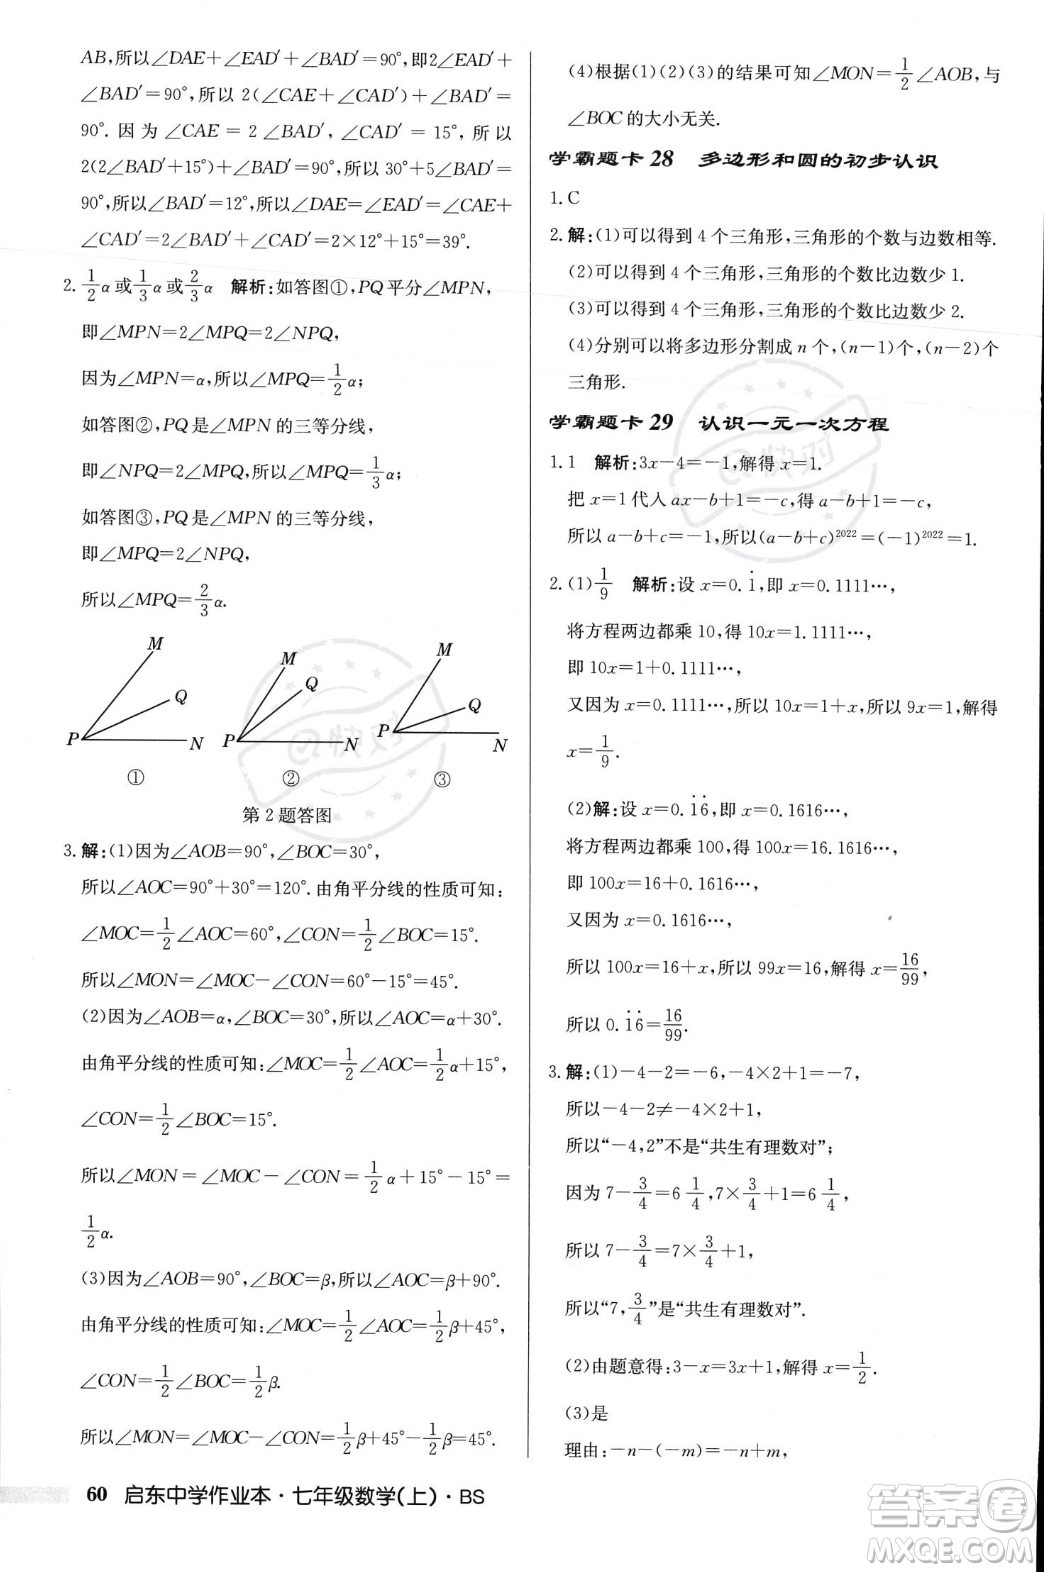 AB,所以∠DAE+∠EAD′+∠BAD′=90°,即2∠EAD′+
∠BAD′=90°,所以 2(∠CAE+∠CAD′)+∠BAD′=
90°.因为∠CAE=2∠BAD′,∠CAD′=15°,所以
2(2∠BAD′+15°)+∠BAD′=90°,所以 30°+5∠BAD′=
90°,所以∠BAD′=12°,所以∠DAE=∠EAD′=∠CAE+
∠CAD′=2∠BAD′+∠CAD′=2×12°+15°=39°.
2. 1/2α或1/3α或2/3α 解析:如答图①,PQ平分∠MPN,
即∠MPN=2∠MPQ=2∠NPQ,
因为∠MPN=α,所以∠MPQ=1/2α;
如答图②,PQ是∠MPN的三等分线,
即∠NPQ=2∠MPQ,所以∠MPQ=1/3α;
如答图③,PQ是∠MPN的三等分线,
即∠MPQ=2∠NPQ,
所以∠MPQ=2/3α.
M
Q
P
N
①
M
Q
P
N
②
M
Q
P
N
③
第2题答图
3.解:(1)因为∠AOB=90°,∠BOC=30°,
所以∠AOC=90°+30°=120°.由角平分线的性质可知:
∠MOC=1/2∠AOC=60°,∠CON=1/2∠BOC=15°.
所以∠MON=∠MOC-∠CON=60°-15°=45°.
(2)因为∠AOB=α,∠BOC=30°,所以∠AOC=α+30°.
由角平分线的性质可知:∠MOC=1/2∠AOC=1/2α+15°,
∠CON=1/2∠BOC=15°.
所以∠MON=∠MOC-∠CON=1/2α+15°-15°=
1/2α.
(3)因为∠AOB=90°,∠BOC=β,所以∠AOC=β+90°.
由角平分线的性质可知:∠MOC=1/2∠AOC=1/2β+45°,
∠CON=1/2∠BOC=1/2β.
所以∠MON=∠MOC-∠CON=1/2β+45°-1/2β=45°.
(4)根据(1)(2)(3)的结果可知∠MON=1/2∠AOB,与
∠BOC的大小无关.
学霸题卡28 多边形和圆的初步认识
1.C
2.解:(1)可以得到4个三角形,三角形的个数与边数相等.
(2)可以得到4个三角形,三角形的个数比边数少1.
(3)可以得到4个三角形,三角形的个数比边数少2.
(4)分别可以将多边形分割成n个,(n-1)个,(n-2)个
三角形.
学霸题卡29 认识一元一次方程
1.1 解析:3x-4=-1,解得x=1.
把x=1代入ax-b+1=-c,得a-b+1=-c,
所以a-b+c=-1,所以(a-b+c)²⁰²²=(-1)²⁰²²=1.
2.(1)1/9 解析:设x=0.1̇,即x=0.1111…,
将方程两边都乘10,得10x=1.1111…,
即10x=1+0.1111…,
又因为x=0.1111…,所以10x=1+x,所以9x=1,解得
x=1/9.
(2)解:设x=0.1̇6̇,即x=0.1616…,
将方程两边都乘100,得100x=16.1616…,
即100x=16+0.1616…,
又因为x=0.1616…,
所以100x=16+x,所以99x=16,解得x=16/99,
所以0.1̇6̇=16/99.
3.解:(1)-4-2=-6,-4×2+1=-7,
所以-4-2≠-4×2+1,
所以“-4,2”不是“共生有理数对”;
因为7-3/4=6 1/4,7×3/4+1=6 1/4,
所以7-3/4=7×3/4+1,
所以“7,3/4”是“共生有理数对”.
(2)由题意得:3-x=3x+1,解得x=1/2.
(3)是
理由:-n-(-m)=-n+m,
60 启东中学作业本·七年级数学(上)·BS
答案圈
MXQE.COM